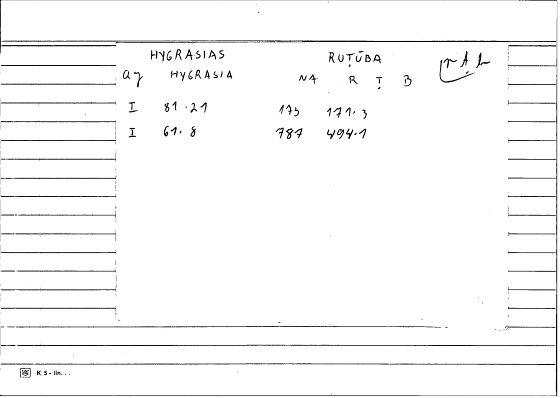 HYGRASIAS RUṬŪBA
ay HYGRASIA NA R Ṭ B rṭb
I 81.21 173 171.3
I 61.8 787 494.1
K 5 - lin. . .